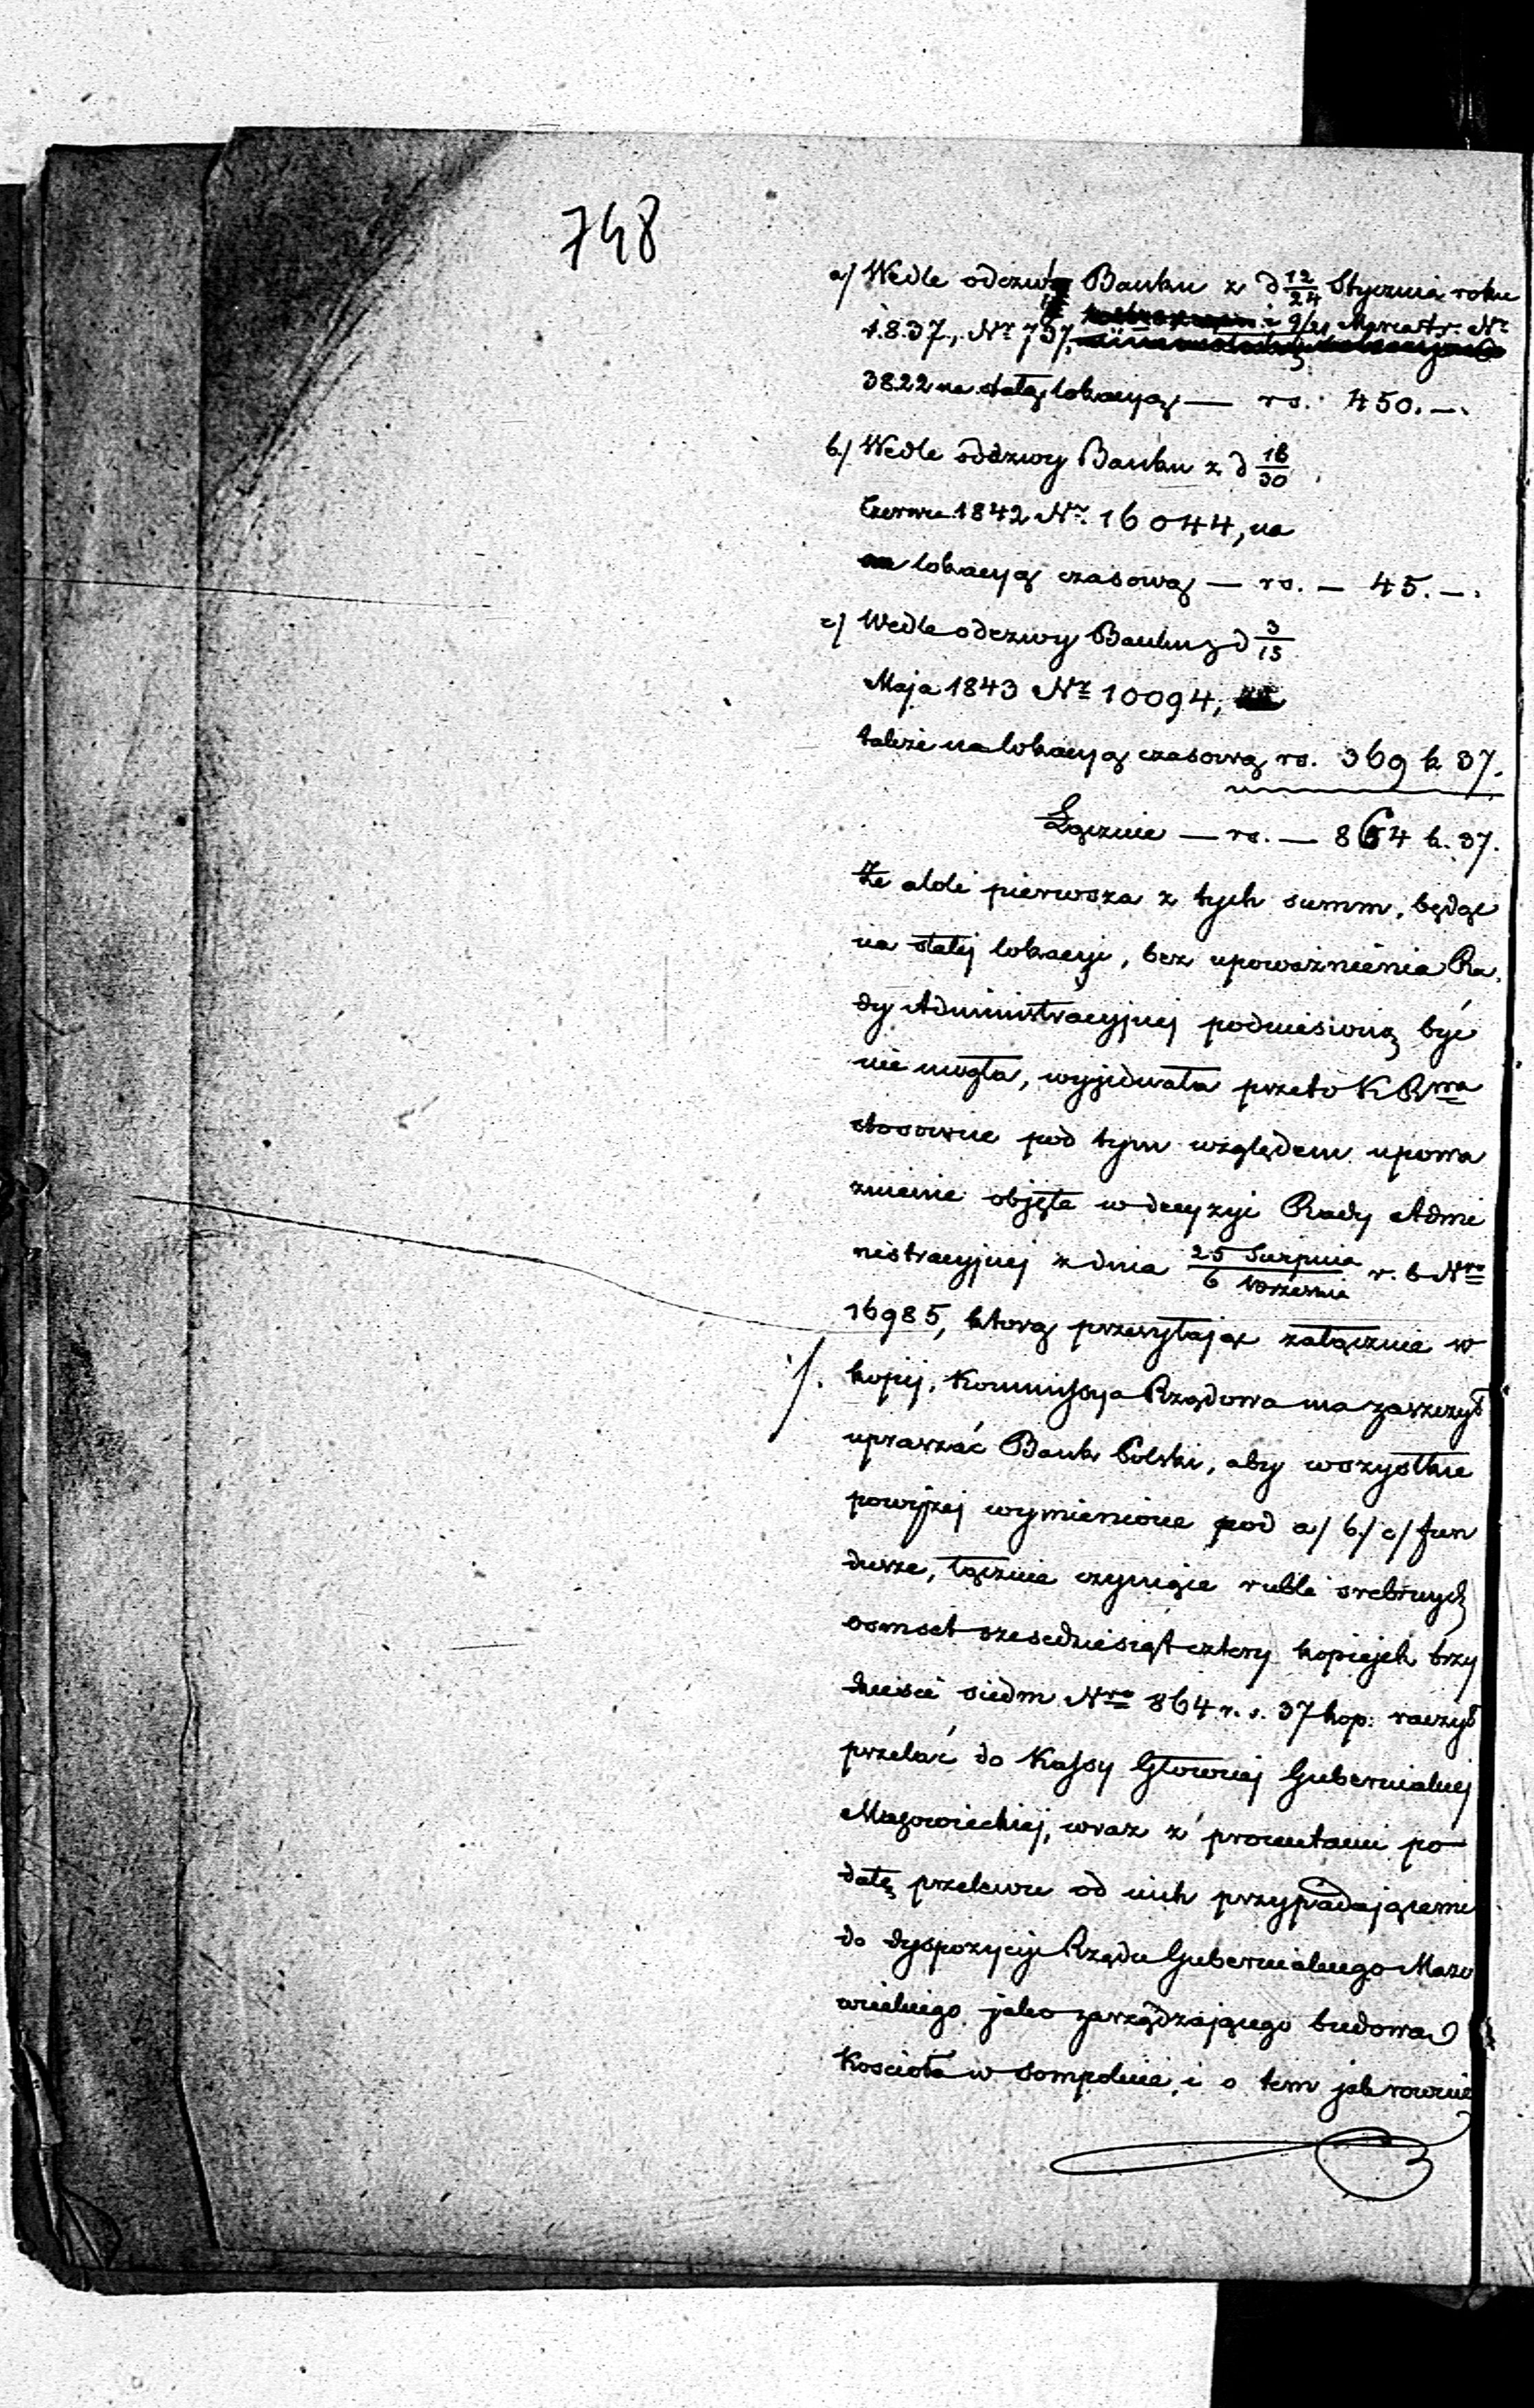 748
a/ Wedle odezwy Banku z d 12/24 Stycznia roku
1837, Nr 737, i 9/21 Marca t. r. Nr
3822 na stałą lokacyą — rs. 450. —
b/ Wedle odezwy Banku z d 18/30
Czerwca 1842 Nr. 16044, na
lokacyą czasową — rs. — 45. —
c/ Wedle odezwy Banku z d 3/15
Maja 1843 Nr 10094,
także na lokacyą czasową rs. 369 k 37.
Łącznie — rs. — 864 k. 37.
Że zaś pierwsza z tych summ, będąc
na stałej lokacyi, bez upoważnienia Ra
dy Administracyjnej podniesioną być
nie mogła, wyjednała przeto K R
stosowne pod tym względem upowa
żnienie objęte w decyzyi Rady Admi
nistracyjnej z dnia 25 Sierpnia / 6 Września r. b Nro
16985, którą przesyłając załącznie w
·/. kopij, Kommissya Rządowa ma zaszczyt
upraszać Bank Polski, aby wszystkie
powyżej wymienione pod a/ b/ c/ fun
dusze, łącznie czyniące rubli srebrnych
osmset szesćdziesiąt cztery kopiejek trzy
dzieści siedm Nro 864 r. s. 37 kop: raczył
przelać do Kassy Głownej Gubernialnej
Mazowieckiej, wraz z procentami po
datę przelewu od nich przypadającemi
do dyspozycyi Rządu Gubernialnego Mazo
wieckiego jako zarządzającego budową
Kościoła w Sompolnie, i o tem jak rownie